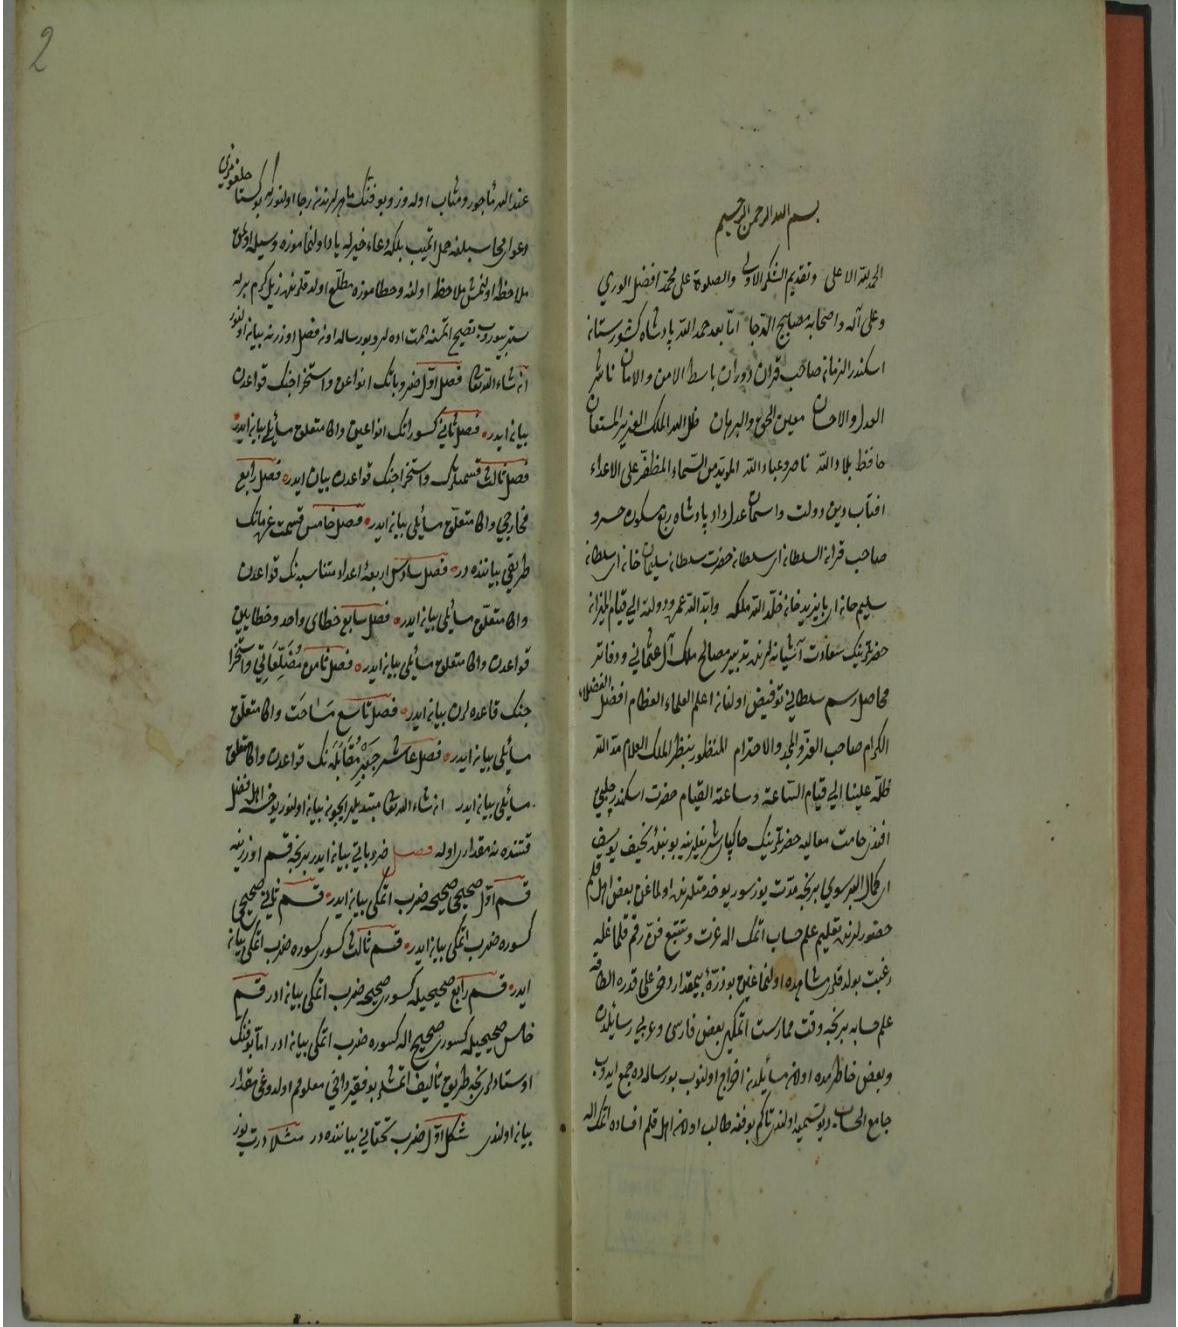 بسم الله الرحمن الرحيم
الحمد لله الاعلى وتقديم الشكر الاولى والصلوة على محمد افضل الورى
وعلى آله واصحابه مصابيح الدجا امّا بعد حمد الله پادشاه كشورستانه
اسكندر الزمانه صاحب قران دوران باسط الامن والامان ناشر
العدل والاحسان معين الحق والبرهان ظل الله الملك العزيز المستعان
حافظ بلاد الله ناصر وعباد الله المؤيد من السماء المظفر على الاعداء
افتاب دين ودولت واسمان عدل وداد پادشاه ربع مسكون خسرو
صاحب قرانه السلطانه ابن سلطانه حضرت سلطانه سليمان خانه ابن سلطانه
سليم خانه ابن بايزيد خانه خلد الله ملكه وابد الله عمره ودولته الى قيام الميزانه
حضرتلرينك سعادت آشيانه لرنده تدبير مصالح ملك آل عثمانى ودفاتر
محاصل رسم سلطانى تفويض اولنانه اعلم العلماء العظام افضل الفضلاء
الكرام صاحب العز والمجد والاحترام المنظور بنظر الملك العلام مد الله
ظله علينا الى قيام الساعة وساعة القيام حضرت اسكندر چلبى
افندى دامت معاليه حضرتلرينك خاكپاى شريفلرينه بو بنده نحيف يوسف
ابن كمال البرسوى بر نجه مدت يوز سوريو خدمتلرنده اولماغن بعض اهل قلم
حضورلرنده تعليم علم حساب اتمك اله عزت وتتبع فن رقم قلماغله
رغبت بولدقلرى مشاهده اولنماغين بو ذرّه بيمقدار دخى على قدر الطاقه
علم حسابه بر نجه وقت ممارست اتمكين بعض فارسى وعربى رسايلدن
وبعض خاطرمده اولانه مسائلدنه اخراج اولنوب بو رساله ده جمع ايدوب
جامع الحساب ديو تسميه اولندى تاكم بو فنه طالب اولانه اهل قلم افاده اتمك اله
عند الله مأجور ومثاب اوله وز وبو فنك ماهرلرندنه رجا اولنور كه بو كستاخلغومزى
دعواى محاسبلغه حمل اتميب بلكه دعاء خير له ياد اولنماموزه وسيله اولمق
ملاحظه اولنمش ملاحظه اولنه وخطاموزه مطلع اولدقلرنده زيل كرم برله
ستر بيوروب تصحيح اتمنه همت ايده لر وبو رساله اونه فصل اوزرنه بيانه اولنور
انه شاء الله تعالى فصل اول ضروباتك انواعن واستخراجنك قواعدن
بيانه ايدر فصل ثانى كسوراتك انواعين واكا متعلق مسائلى بيانه ايدر
فصل ثالث قسمتك واستخراجنك قواعدن بيان ايدر فصل رابع
مخارجى واكا متعلق مسائلى بيانه ايدر فصل خامس قسمت غرمانك
طريقى بياننده در فصل سادس اربعهٔ اعداد متناسبه نك قواعدن
واكا متعلق مسائلى بيانه ايدر فصل سابع خطاى واحد وخطايين
قواعدن واكا متعلق مسائلى بيانه ايدر فصل ثامن مضلعاتى واستخرا
جنك قاعده لرن بيانه ايدر فصل تاسع مساحت واكا متعلق
مسائلى بيانه ايدر فصل عاشر جبر مقابله نك قواعدن واكا متعلق
مسائلى بيانه ايدر انه شاء الله تعالى مبتديلر ايچونه بيانه اولنور يوخسه اهل فضل
قتنده نه مقدارى اوله فصل ضروباتى بيانه ايدر بر نجه قسم اوزرنه
قسم اول صحيحى صحيحه ضرب اتمكى بيانه ايدر قسم ثانى صحيحى
كسوره ضرب اتمكى بيانه ايدر قسم ثالث كسورى كسوره ضرب اتمكى بيانه
ايدر قسم رابع صحيحيله كسورى صحيحه ضرب اتمكى بيانه ادر قسم
خامس صحيحيله كسورى صحيح اله كسوره ضرب اتمكى بيانه ادر اما بو فنك
اوستادلرى نجه طريق تاليف اتمشلر بو فقير دخى معلوم اولدوغى مقدار
بيانه اولندى شكل اول ضرب تحتانى بياننده در مثلا درت يوز
2